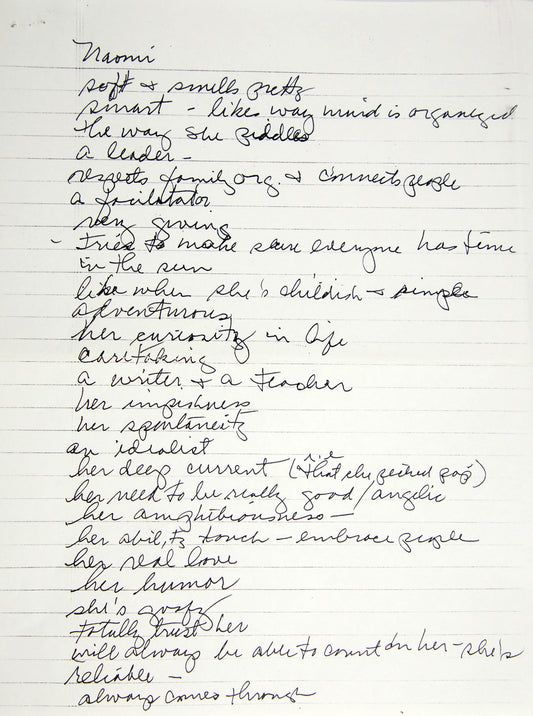 Naomi
soft & smells pretty
smart - likes way mind is organized
the way she piddles
a leader -
respects family org. & connects people
a facilitator
very giving
- Tries to make sure everyone has time
in the sun
like when she's childish & simple
adventurous
her curiosity in life
caretaking
a writer & a teacher
her impishness
her spontaneity
an idealist
her deep current (i.e that she picked pop)
her need to be really good/angelic
her amphibiousness -
her ability to touch - embrace people
her real love
her humor
she's goofy
totally trust her
will always be able to count on her - she's
reliable -
always comes through